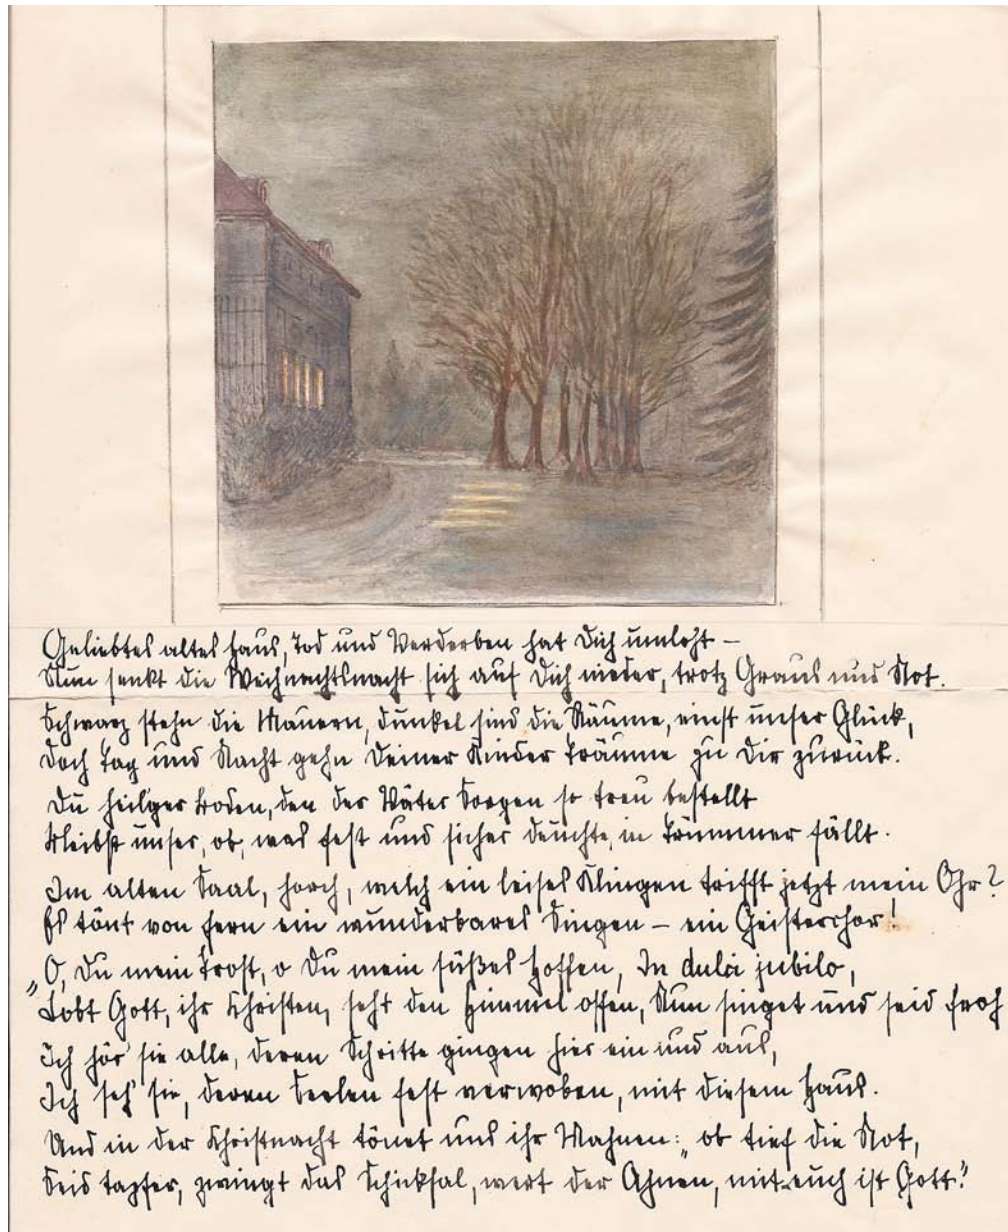 Geliebtes altes Haus, Tod und Verderben hat Dich umloht –
Nun senkt die Weihnachtsnacht sich auf Dich nieder, trotz Graus und Not.
Schwarz stehn die Mauern, dunkel sind die Räume, einst unser Glück,
Doch Tag und Nacht gehn Deiner Kinder Träume zu Dir zurück.
Du heil'ger Boden, den der Väter Sorgen so treu bestellt
Bleibst unser, ob, was fest und sicher deuchte, in Trümmer fällt.
Im alten Saal, horch, welch ein leises Klingen trifft jetzt mein Ohr?
Es tönt von fern ein wunderbares Singen – ein Geisterchor!
„O, Du mein Trost, o Du mein süßes Hoffen, In dulci jubilo,
Lobt Gott, ihr Christen, seht den Himmel offen, Nun singet und seid froh
Ich hör' sie alle, deren Schritte gingen hier ein und aus,
Ich seh' sie, deren Seelen fest verwoben, mit diesem Haus.
Und in der Christnacht tönet uns ihr Mahnen: „ob tief die Not,
Seid tapfer, zwingt das Schicksal, wert der Ahnen, mit euch ist Gott."